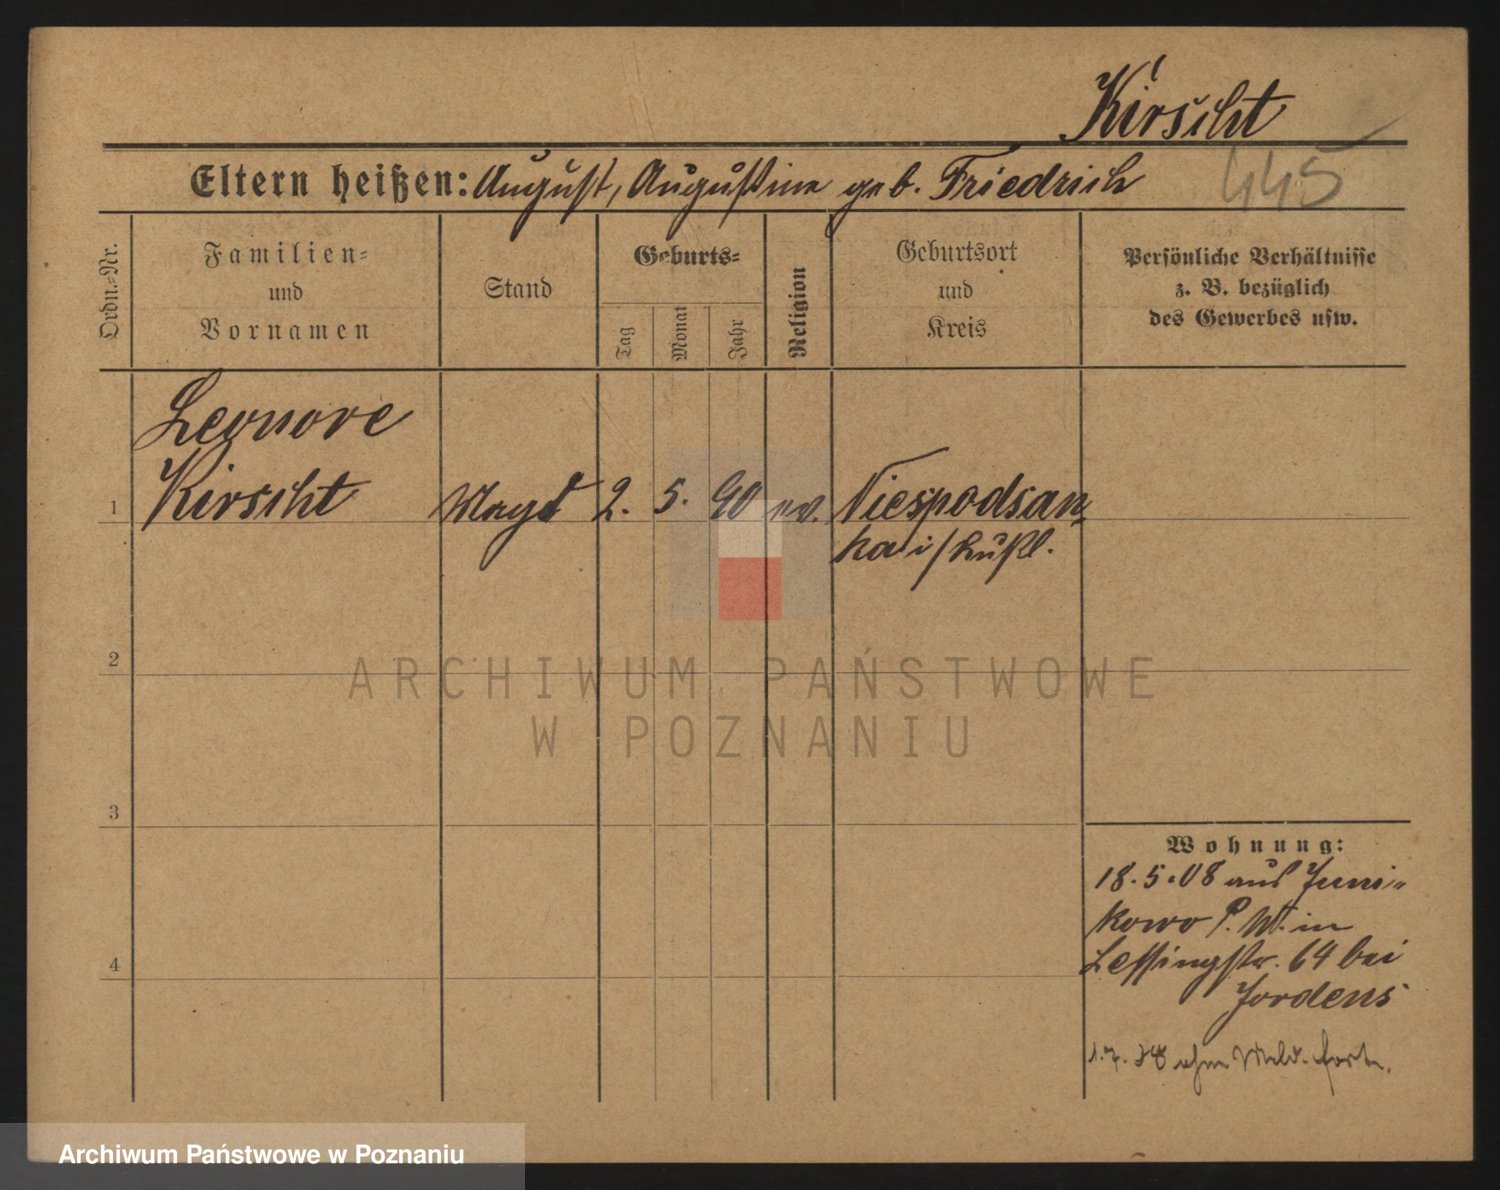 Kirscht
Eltern heißen: August, Augustine geb. Friedrich
445
Ordn.-Nr.
Familien-
und
Vornamen
Stand
Geburts-
Tag
Monat
Jahr
Religion
Geburtsort
und
Kreis
Persönliche Verhältnisse
z. B. bezüglich
des Gewerbes usw.
Leonore
Kirscht
1 Magd 2. 5. 90 ev. Niespodsan-
ka i/Rußl.
2
ARCHIWUM PAŃSTWOWE
W POZNANIU
3
Wohnung:
18.5.08 aus Juni-
kowo P. W. in
4
Lessingstr. 64 bei
Jordens
1.7. ohne Meld. fort.
Archiwum Państwowe w Poznaniu